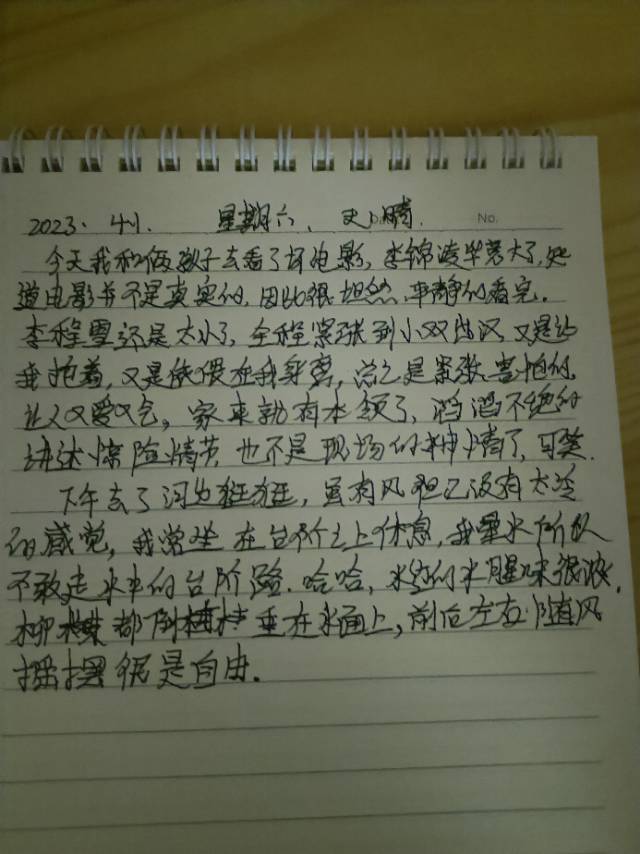 2023. 4.1. 星期六、 天晴. No.
今天我和俩孩子去看了场电影, 李锦凌毕竟大了, 知
道电影书不是真实的, 因此很坦然, 平静的看完.
李程雪还是太小了, 全程紧张到小双出汉, 又是让
我抱着, 又是依偎在我身旁, 总之是紧张害怕的,
让人又爱又气, 家来就有本领了, 滔滔不绝的
讲述惊险情节, 也不是现场的神情了, 可笑.
下午去了河边逛逛, 虽有风但已没有太冷
的感觉, 我常坐在台阶之上休息, 我
不敢走水中的台阶险. 哈哈, 水的水腥味很浓,
柳 都倒 垂在水面上, 前后左右随风
摇摆很是自由.